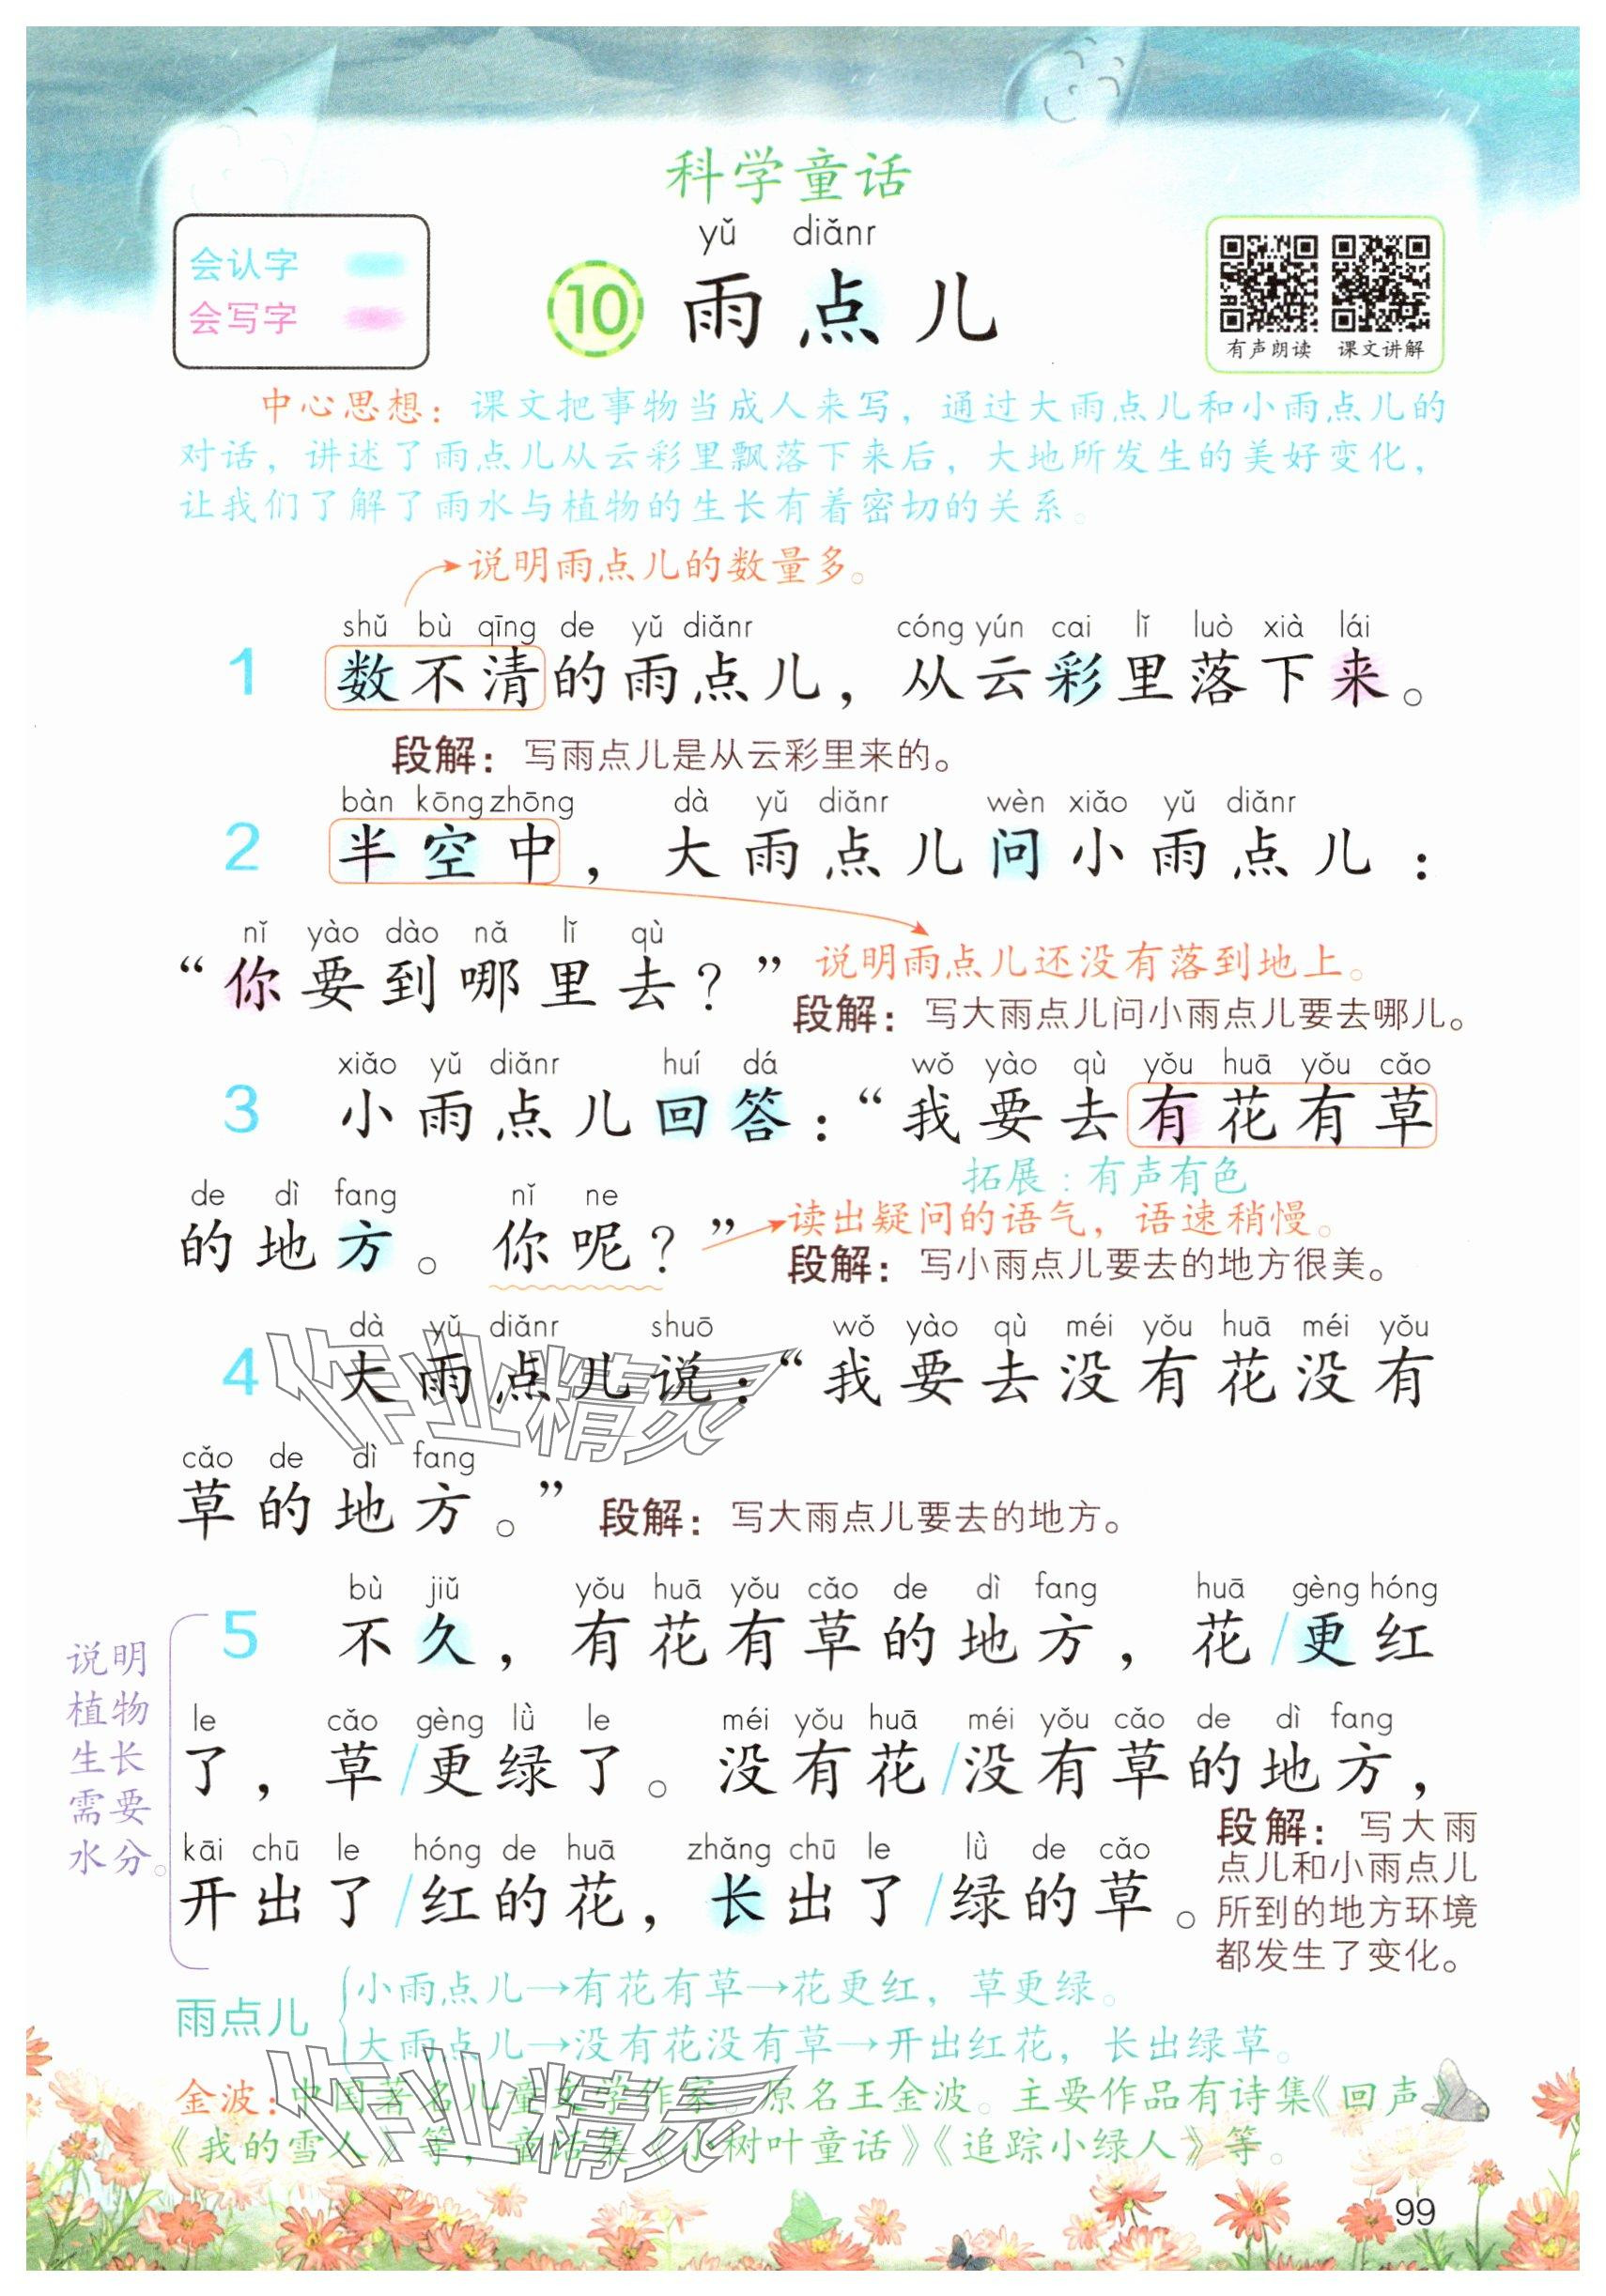 科学童话
会认字
会写字
yǔ diǎnr
10 雨点儿
有声朗读 课文讲解
中心思想：课文把事物当成人来写，通过大雨点儿和小雨点儿的
对话，讲述了雨点儿从云彩里飘落下来后，大地所发生的美好变化，
让我们了解了雨水与植物的生长有着密切的关系。
说明雨点儿的数量多。
shǔ bù qīng de yǔ diǎnr cóng yún cai lǐ luò xià lái
1 数不清的雨点儿，从云彩里落下来。
段解：写雨点儿是从云彩里来的。
bàn kōng zhōng dà yǔ diǎnr wèn xiǎo yǔ diǎnr
2 半空中，大雨点儿问小雨点儿：
nǐ yào dào nǎ lǐ qù
“你要到哪里去？”
说明雨点儿还没有落到地上。
段解：写大雨点儿问小雨点儿要去哪儿。
xiǎo yǔ diǎnr huí dá wǒ yào qù yǒu huā yǒu cǎo
3 小雨点儿回答：“我要去有花有草
拓展：有声有色
de dì fang nǐ ne
的地方。你呢？”
读出疑问的语气，语速稍慢。
段解：写小雨点儿要去的地方很美。
dà yǔ diǎnr shuō wǒ yào qù méi yǒu huā méi yǒu
4 大雨点儿说：“我要去没有花没有
cǎo de dì fang
草的地方。”
段解：写大雨点儿要去的地方。
bù jiǔ yǒu huā yǒu cǎo de dì fang huā gèng hóng
5 不久，有花有草的地方，花/更红
le cǎo gèng lǜ le méi yǒu huā méi yǒu cǎo de dì fang
了，草/更绿了。没有花/没有草的地方，
kāi chū le hóng de huā zhǎng chū le lǜ de cǎo
开出了/红的花，长出了/绿的草。
说明
植物
生长
需要
水分。
段解：写大雨
点儿和小雨点儿
所到的地方环境
都发生了变化。
雨点儿
小雨点儿→有花有草→花更红，草更绿。
大雨点儿→没有花没有草→开出红花，长出绿草。
金波：中国著名儿童文学作家。原名王金波。主要作品有诗集《回声》
《我的雪人》等，童话集《小树叶童话》《追踪小绿人》等。
99
作业精灵
作业精灵